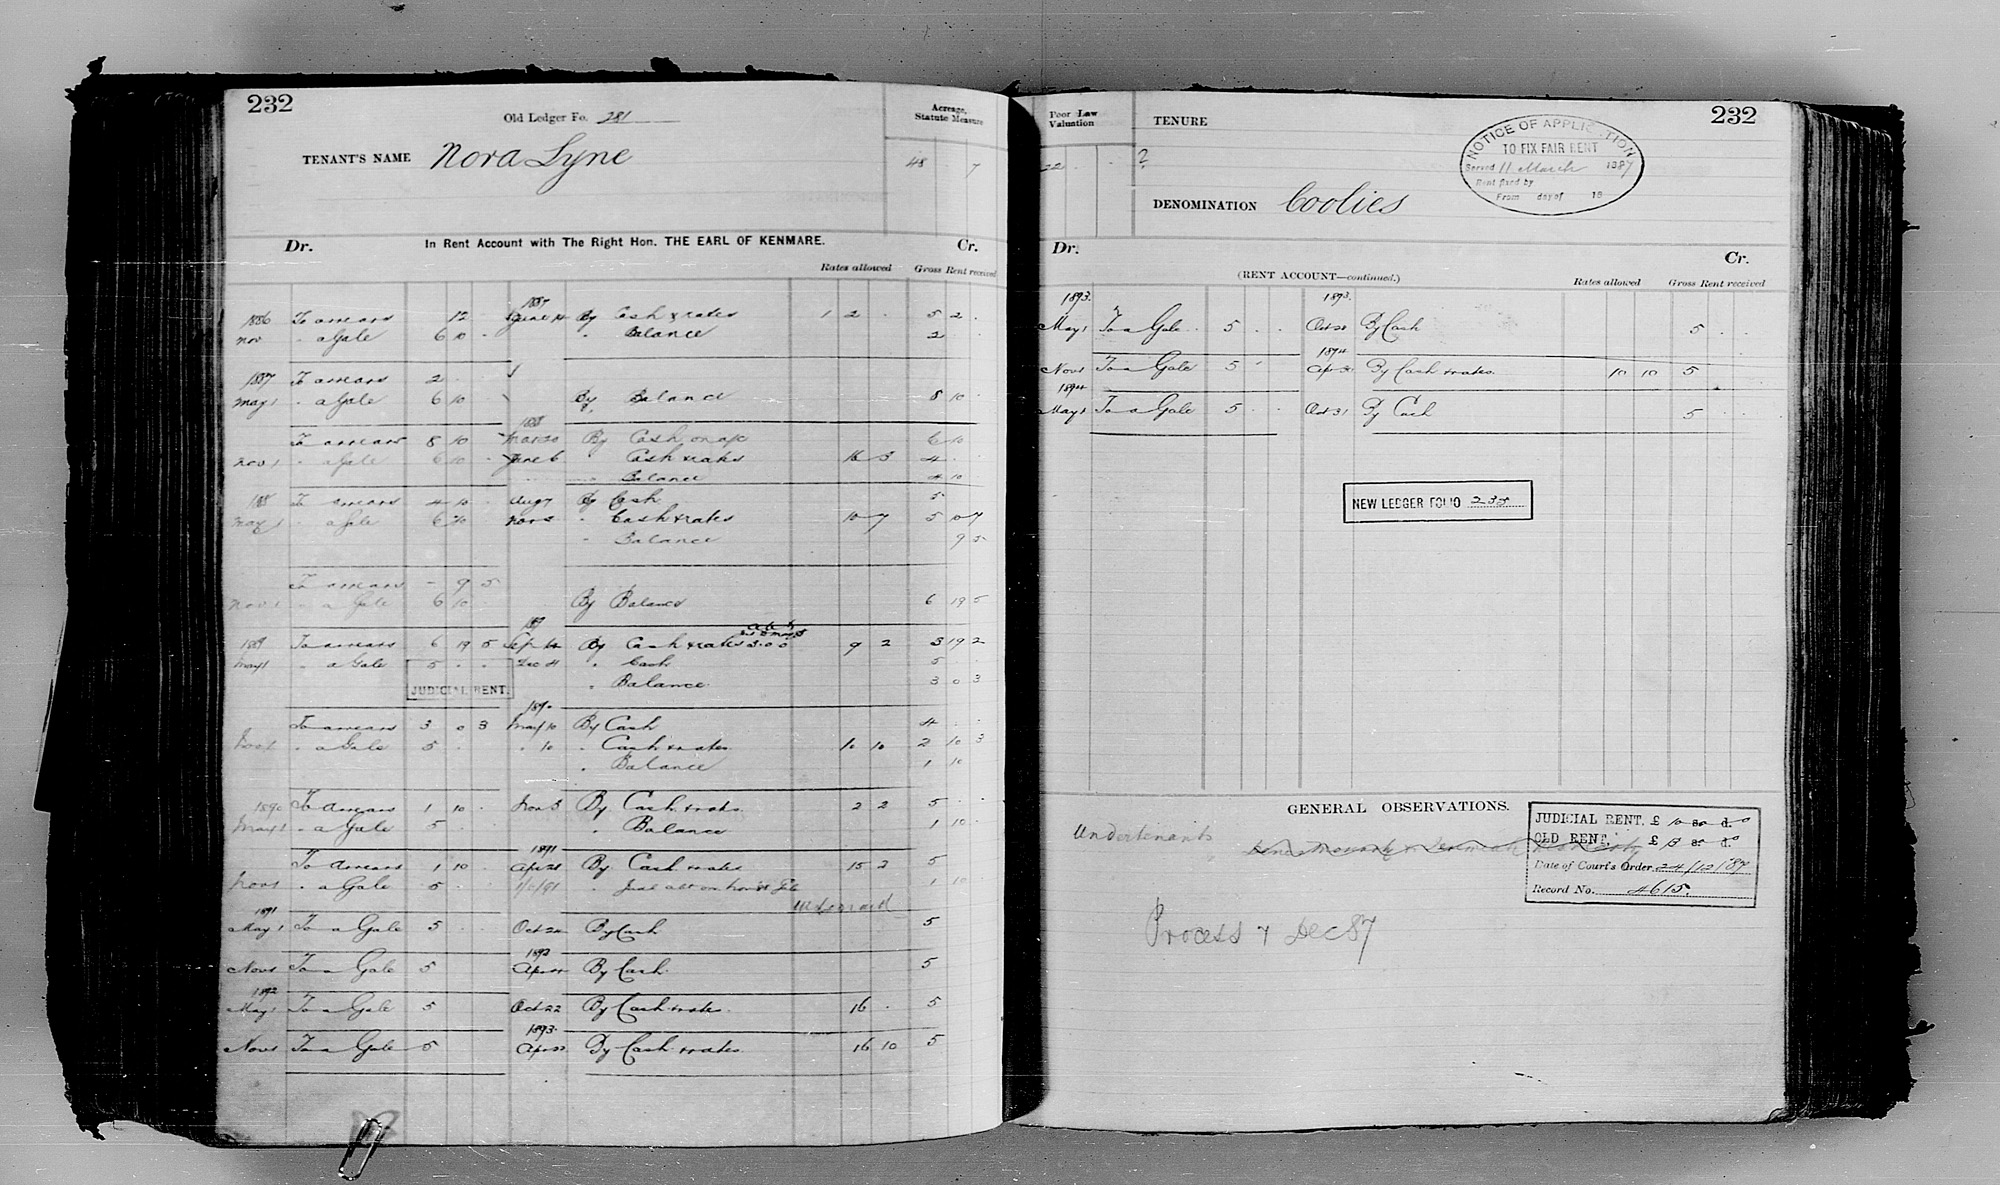 232
Old Ledger Fo. 281
Acreage, Statute Measure
TENANT'S NAME Nora Lyne
48 7
Dr. In Rent Account with The Right Hon. THE EARL OF KENMARE. Cr.
Rates allowed Gross Rent received
1887
1886 To arrears 12 June 14 By Cash & rates 1 2 . 5 2 .
Nov " a Gale 6 10 . " Balance 2
1887 To arrears 2
May 1 " a Gale 6 10 By Balance 8 10 .
1888
To arrears 8 10 Mar 20 By Cash on a/c 6 10
Nov 1 " a Gale 6 10 . June 6 " Cash & rates 16 3 4 .
" Balance 4 10
188 To arrears 4 10 . Aug 7 By Cash 5
May 1 " a Gale 6 10 Nov " Cash & rates 10 7 5 0 7
" Balance 9 5
To arrears - 9 5
Nov 1 " a Gale 6 10 By Balance 6 19 5
1889 To arrears 6 19 5 Sept By Cash & rates 3.0.0 9 2 3 19 2
May 1 " a Gale 5 . . Dec 4 " Cash 5
JUDICIAL RENT. " Balance 3 0 3
1890
To arrears 3 0 3 May 10 By Cash 4 . .
Nov 1 " a Gale 5 . " 10 " Cash & rates 10 10 2 10 3
" Balance 1 10
1890 To arrears 1 10 . Nov 3 By Cash & rates 2 2 5
May 1 " a Gale 5 . " Balance 1 10
1891
To arrears 1 10 . Apr 28 By Cash & rates 15 3 5
Nov 1 " a Gale 5 . " Judl abt on Nov 1 10
1891
May 1 To a Gale 5 . Oct By Cash 5
1892
Nov 1 To a Gale 5 Apr By Cash 5
1892
May 1 To a Gale 5 Oct 22 By Cash & rates 16 . 5
1893
Nov 1 To a Gale 5 Apr By Cash & rates 16 10 5
Poor Law Valuation
TENURE
232
22 . ?
NOTICE OF APPLICATION
TO FIX FAIR RENT
Served 11 March 1887
Rent fixed by
From day of 18
DENOMINATION Coolies
Dr. Cr.
(RENT ACCOUNT—continued.)
Rates allowed Gross Rent received
1893. 1893.
May 1 To a Gale 5 . . Oct 28 By Cash 5 . .
1894
Nov 1 To a Gale 5 Apr 30 By Cash & rates 10 10 5
1894
May 1 To a Gale 5 . . Oct 31 By Cash 5 .
NEW LEDGER FOLIO 235
GENERAL OBSERVATIONS.
Undertenants
JUDICIAL RENT. £ 10 s. d.
OLD RENT. £ 13 s. d.
Date of Court's Order 24/12/87
Record No. 4615.
Process 7 Dec 87